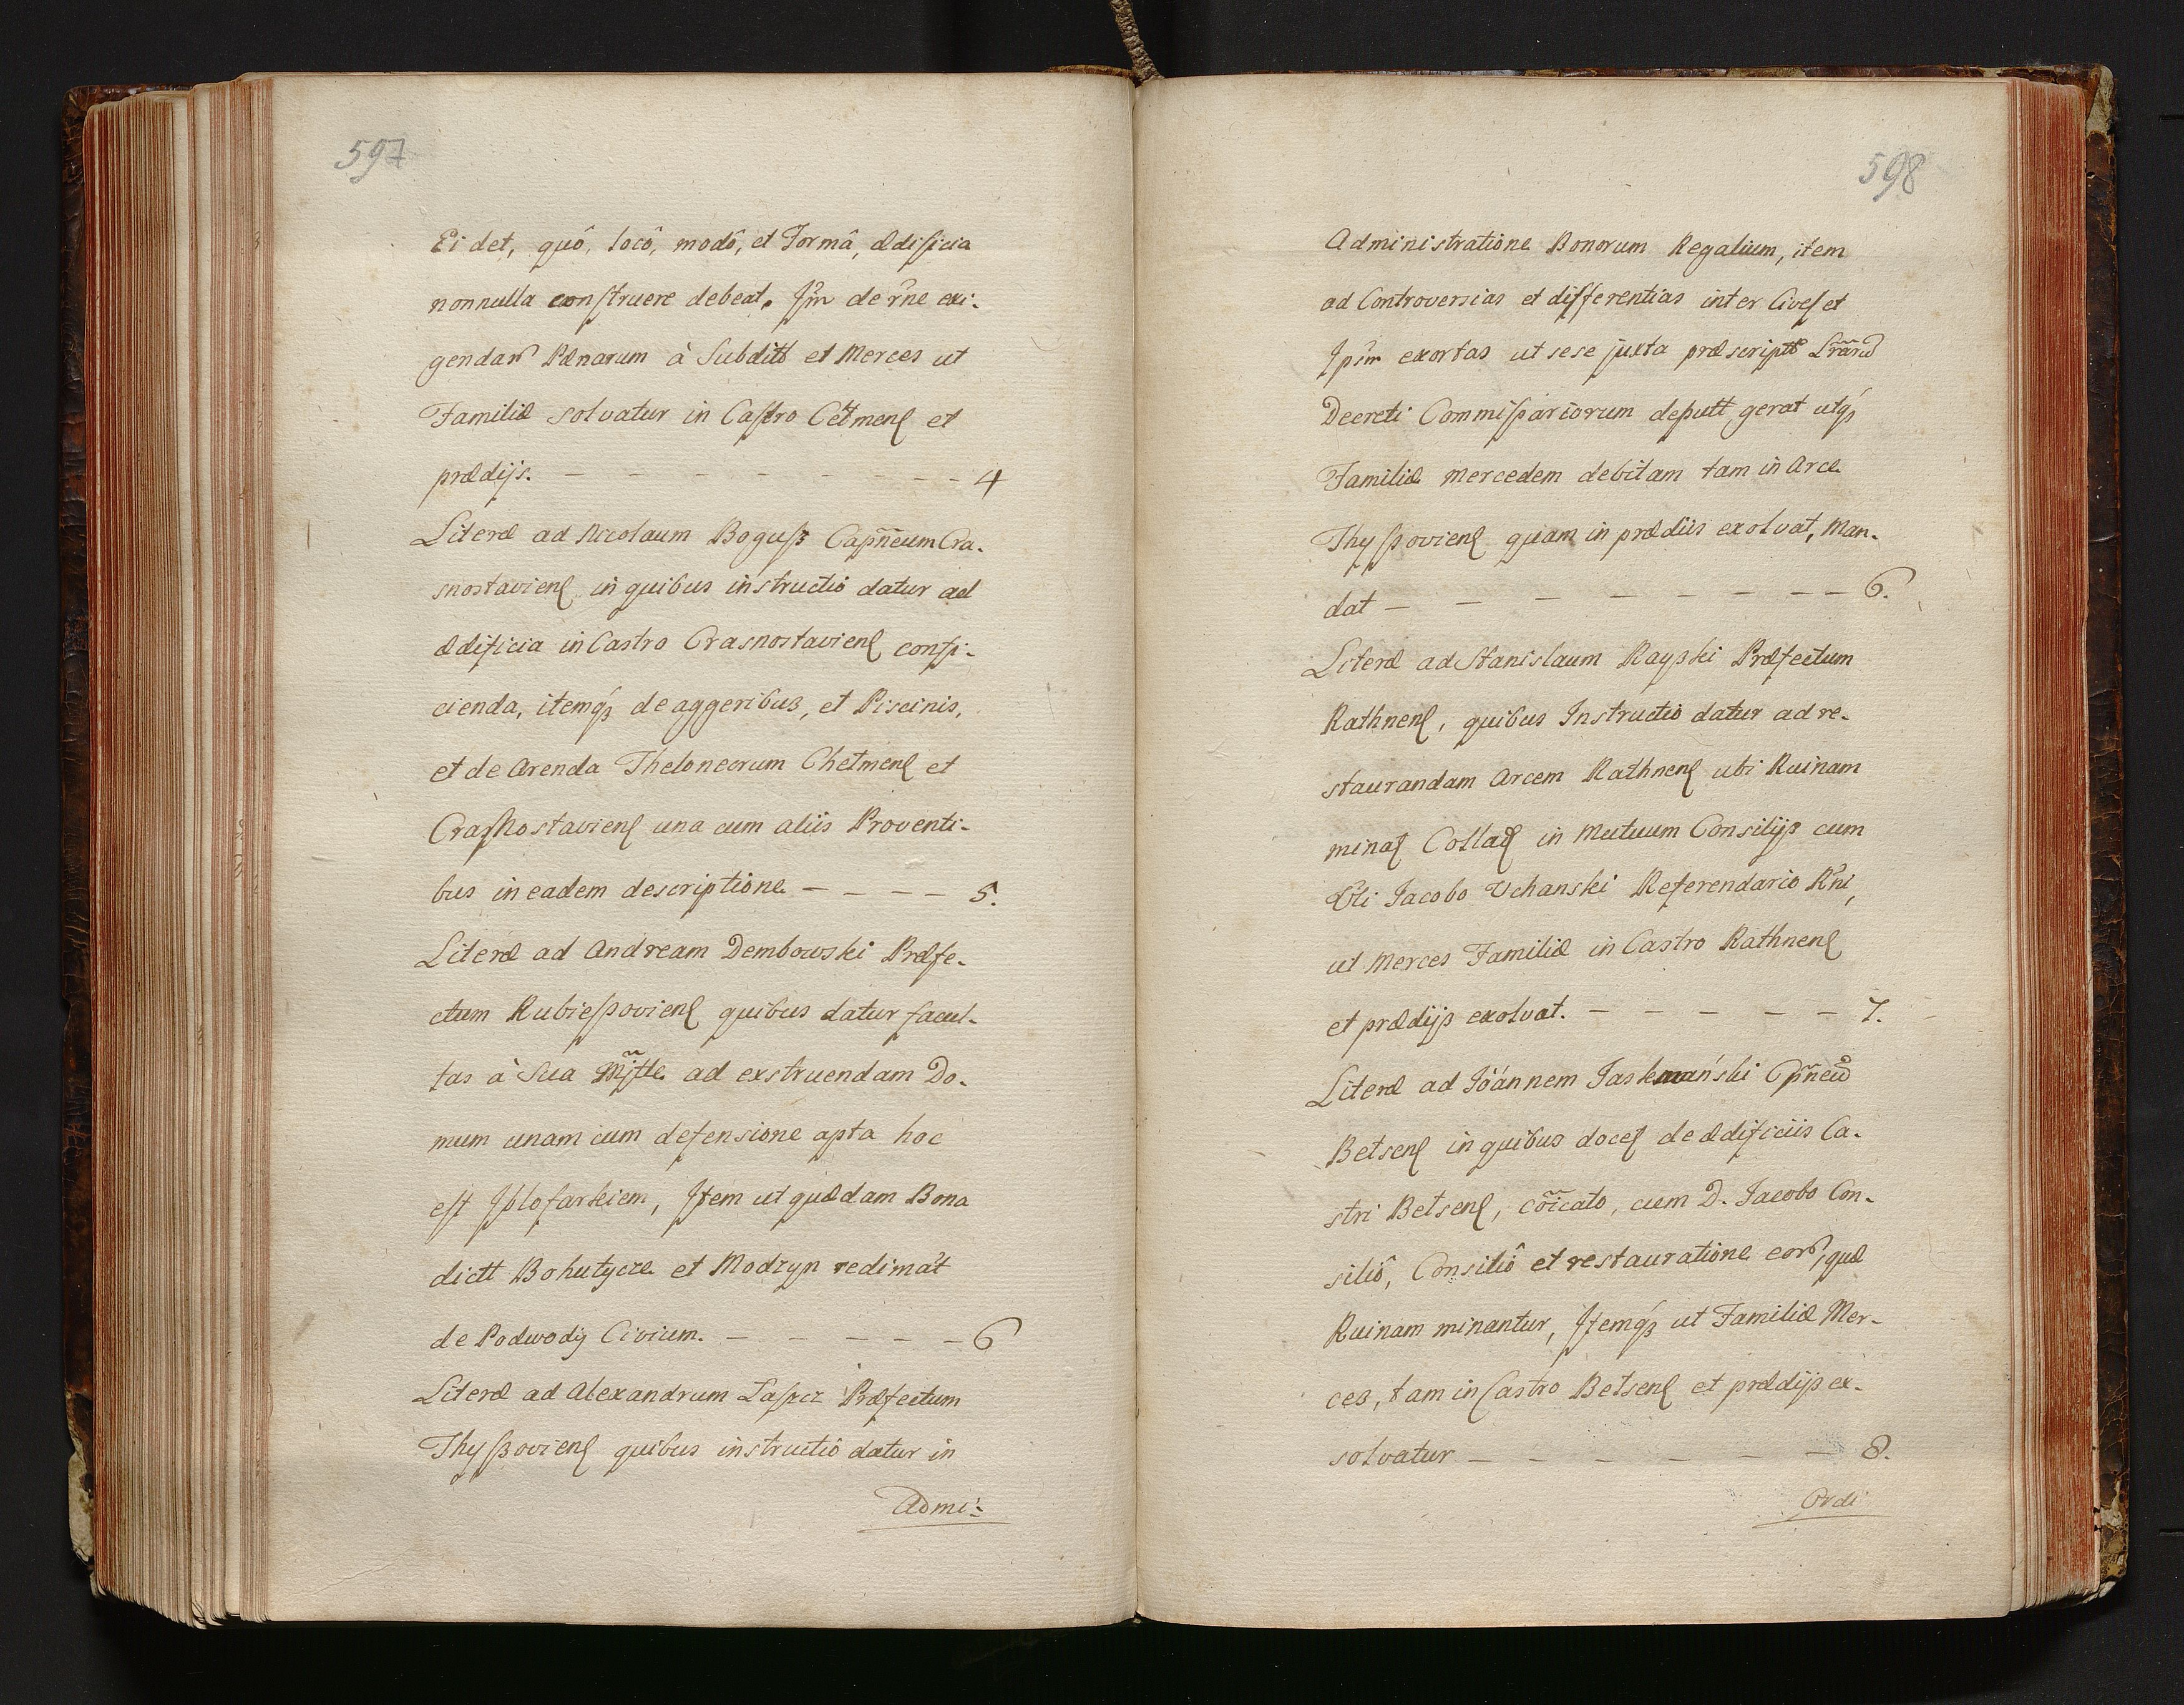 597
Ei det, quô, locô, modô, et Formâ, ædificia
nonnulla construere debeat. Iṕm de rñe exi-
gendar̃ Pænarum à Subditt et Merces ut
Familiæ solvatur in Castro Cetmenß et
prædijs. — — — — — — — — 4
Literæ ad Nicolaum Boguß Capñeum Cra-
snostavienß in quibus instructio datur ad
ædificia in Castro Crasnostavienß confi-
cienda, itemqꝫ de aggeribus, et Piscinis,
et de Arenda Theloneorum Chetmenß et
Crasnostavienß una cum aliis Proventi-
bus in eadem descriptione — — — — 5.
Literæ ad Andream Dembowski Præfe-
ctum Rubießovienß quibus datur facul-
tas à Sua Mj̃tte ad exstruendam Do-
mum unam cum defensione apta hoc
est Jßlofarkiem, Item ut quædam Bona
dictt Bohutycze et Modryn redimat
de Podwody Civium. — — — — — 6
Literæ ad Alexandrum Laßcz Præfectum
Thyßovienß quibus instructio datur in
Admi-
598
Administratione Bonorum Regalium, item
ad Controversias et differentias inter Cives et
Ipsm̃ exortas ut sese juxta præscriptt Lrãrũ
Decreti Commißariorum deputt gerat utqꝫ
Familiæ mercedem debitam tam in Arce
Thyßovienß quam in prædiis exolvat, Man-
dat — — — — — — — — 6.
Literæ ad Stanislaum Rayßki Præfectum
Rathnenß, quibus Instructio datur ad re-
staurandam Arcem Rathnenß ubi Ruinam
minaß Collaß in Mutuum Consilijs cum
Vli Jacobo Vchanski Referendario Rñi,
ut Merces Familiæ in Castro Rathnenß
et prædijs exolvat. — — — — — 7.
Literæ ad Joánnem Jaskmański Cpñeũ
Betsenß in quibus doceß de ædificiis Ca-
stri Betsenß, cõicato, cum D. Jacobo Con-
siliô, Consiliô et restauratione eor̃, quæ
Ruinam minantur, Itemqꝫ ut Familiæ Mer-
ces, tam in Castro Betsenß et prædijs ex-
solvatur — — — — — — 8.
Ordi